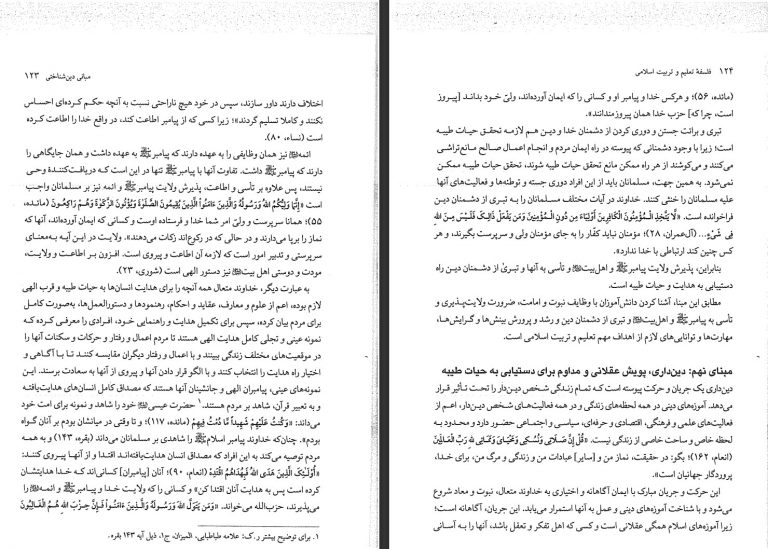 مبانی دین‌شناختی ۱۲۳
اختلاف دارند داور سازند، سپس در خود هیچ ناراحتی نسبت به آنچه حکم کرده‌ای احساس
نکنند و کاملا تسلیم گردند»؛ زیرا کسی که از پیامبر اطاعت کند، در واقع خدا را اطاعت کرده
است (نساء، ۸۰).
ائمه نیز همان وظایفی را به عهده دارند که پیامبر ﷺ به عهده داشت و همان جایگاهی را
دارند که پیامبر ﷺ داشت. تفاوت آنها با پیامبر ﷺ تنها در این است که دریافت‌کنندهٔ وحی
نیستند، پس علاوه بر تأسی و اطاعت، پذیرش ولایت پیامبر ﷺ و ائمه نیز بر مسلمانان واجب
است «إِنَّمَا وَلِيُّكُمُ اللهُ وَرَسُولُهُ وَالَّذِينَ ءَامَنُوا الَّذِينَ يُقِيمُونَ الصَّلَوٰةَ وَيُؤْتُونَ الزَّكَوٰةَ وَهُمْ رَاكِعُونَ (مائده،
۵۵)؛ همانا سرپرست و ولیّ امر شما خدا و فرستاده اوست و کسانی که ایمان آورده‌اند، آنها که
نماز را برپا می‌دارند و در حالی که در رکوع‌اند زکات می‌دهند». ولایت در این آیه به‌معنای
سرپرستی و تدبیر امور است که لازمه آن اطاعت و پیروی است. افزون بر اطاعت و ولایت،
مودت و دوستی اهل بیت نیز دستور الهی است (شوری، ۲۳).
به عبارت دیگر، خداوند متعال همه آنچه را برای هدایت انسان‌ها به حیات طیبه و قرب الهی
لازم بوده، اعم از علوم و معارف، عقاید و احکام، رهنمودها و دستورالعمل‌ها، به‌صورت کامل
برای مردم بیان کرده، سپس برای تکمیل هدایت و راهنمایی خود، افرادی را معرفی کرده که
نمونه عینی و تجلی کامل هدایت الهی هستند تا مردم اعمال و رفتار و حرکات و سکنات آنها را
در موقعیت‌های مختلف زندگی ببینند و با اعمال و رفتار دیگران مقایسه کنند تا با آگاهی و
اختیار راه هدایت را انتخاب کنند و با الگو قرار دادن آنها و پیروی از آنها به سعادت برسند. این
نمونه‌های عینی، پیامبران الهی و جانشینان آنها هستند که مصداق کامل انسان‌های هدایت‌یافته
و به تعبیر قرآن، شاهد بر مردم هستند.۱ حضرت عیسی خود را شاهد و نمونه برای امت خود
می‌داند: «وَكُنتُ عَلَيْهِمْ شَهِيداً مَّا دُمْتُ فِيهِمْ (مائده، ۱۱۷)؛ و تا وقتی در میانشان بودم بر آنان گواه
بودم». چنان‌که خداوند پیامبر اسلام ﷺ را شاهدی بر مسلمانان می‌داند (بقره، ۱۴۳) و به همه
مردم توصیه می‌کند به این افراد که مصداق انسان هدایت‌یافته‌اند اقتدا و از آنها پیروی کنند:
«أُوْلَـٰئِكَ الَّذِينَ هَدَى اللهُ فَبِهُدَاهُمُ اقْتَدِهْ (انعام، ۹۰)؛ آنان [پیامبران] کسانی‌اند که خدا هدایتشان
کرده است پس به هدایت آنان اقتدا کن» و کسانی را که ولایت خدا و پیامبر ﷺ و ائمه را
می‌پذیرند، حزب‌الله می‌خواند. «وَمَن يَتَوَلَّ اللهَ وَرَسُولَهُ وَالَّذِينَ ءَامَنُوا فَإِنَّ حِزْبَ اللهِ هُمُ الْغَالِبُونَ
۱. برای توضیح بیشتر ر.ک: علامه طباطبایی، المیزان، ج۱، ذیل آیه ۱۴۳ بقره.
۱۲۴ فلسفهٔ تعلیم و تربیت اسلامی
(مائده، ۵۶)؛ و هرکس خدا و پیامبر او و کسانی را که ایمان آورده‌اند، ولیّ خود بداند [پیروز
است، چرا که] حزب خدا همان پیروزمندانند».
تبری و برائت جستن و دوری کردن از دشمنان خدا و دین هم لازمه تحقق حیات طیبه
است؛ زیرا با وجود دشمنانی که پیوسته در راه ایمان مردم و انجام اعمال صالح مانع‌تراشی
می‌کنند و می‌کوشند از هر راه ممکن مانع تحقق حیات طیبه شوند، تحقق حیات طیبه ممکن
نمی‌شود. به همین جهت، مسلمانان باید از این افراد دوری جسته و توطئه‌ها و فعالیت‌های آنها
علیه مسلمانان را خنثی کنند. خداوند در آیات مختلف مسلمانان را به تبری از دشمنان دین
فراخوانده است. «لَا يَتَّخِذِ الْمُؤْمِنُونَ الْكَافِرِينَ أَوْلِيَاءَ مِن دُونِ الْمُؤْمِنِينَ وَمَن يَفْعَلْ ذَالِكَ فَلَيْسَ مِنَ اللهِ
فِي شَيْءٍ... (آل‌عمران، ۲۸)؛ مؤمنان نباید کفّار را به جای مؤمنان ولی و سرپرست بگیرند، و هر
کس چنین کند ارتباطی با خدا ندارد».
بنابراین، پذیرش ولایت پیامبر ﷺ و اهل‌بیت و تأسی به آنها و تبریّ از دشمنان دین راه
دستیابی به هدایت و حیات طیبه است.
مطابق این مبنا، آشنا کردن دانش‌آموزان با وظایف نبوت و امامت، ضرورت ولایت‌پذیری و
تأسی به پیامبر ﷺ و اهل‌بیت و تبری از دشمنان دین و رشد و پرورش بینش‌ها و گرایش‌ها،
مهارت‌ها و توانایی‌های لازم از اهداف مهم تعلیم و تربیت اسلامی است.
مبنای نهم: دین‌داری، پویش عقلانی و مداوم برای دستیابی به حیات طیبه
دین‌داری یک جریان و حرکت پیوسته است که تمام زندگی شخص دین‌دار را تحت تأثیر قرار
می‌دهد. آموزه‌های دینی در همه لحظه‌های زندگی و در همه فعالیت‌های شخص دین‌دار، اعم از
فعالیت‌های علمی و فرهنگی، اقتصادی و حرفه‌ای، سیاسی و اجتماعی حضور دارد و محدود به
لحظه خاص و ساحت خاصی از زندگی نیست. «قُلْ إِنَّ صَلَاتِي وَنُسُكِي وَمَحْيَايَ وَمَمَاتِي لِلهِ رَبِّ الْعَالَمِينَ
(انعام، ۱۶۲)؛ بگو: در حقیقت، نماز من و [سایر] عبادات من و زندگی و مرگ من، برای خدا،
پروردگار جهانیان است».
این حرکت و جریان مبارک با ایمان آگاهانه و اختیاری به خداوند متعال، نبوت و معاد شروع
می‌شود و با شناخت آموزه‌های دینی و عمل به آنها استمرار می‌یابد. این جریان، آگاهانه است؛
زیرا آموزه‌های اسلام همگی عقلانی است و کسی که اهل تفکر و تعقل باشد، آنها را به آسانی